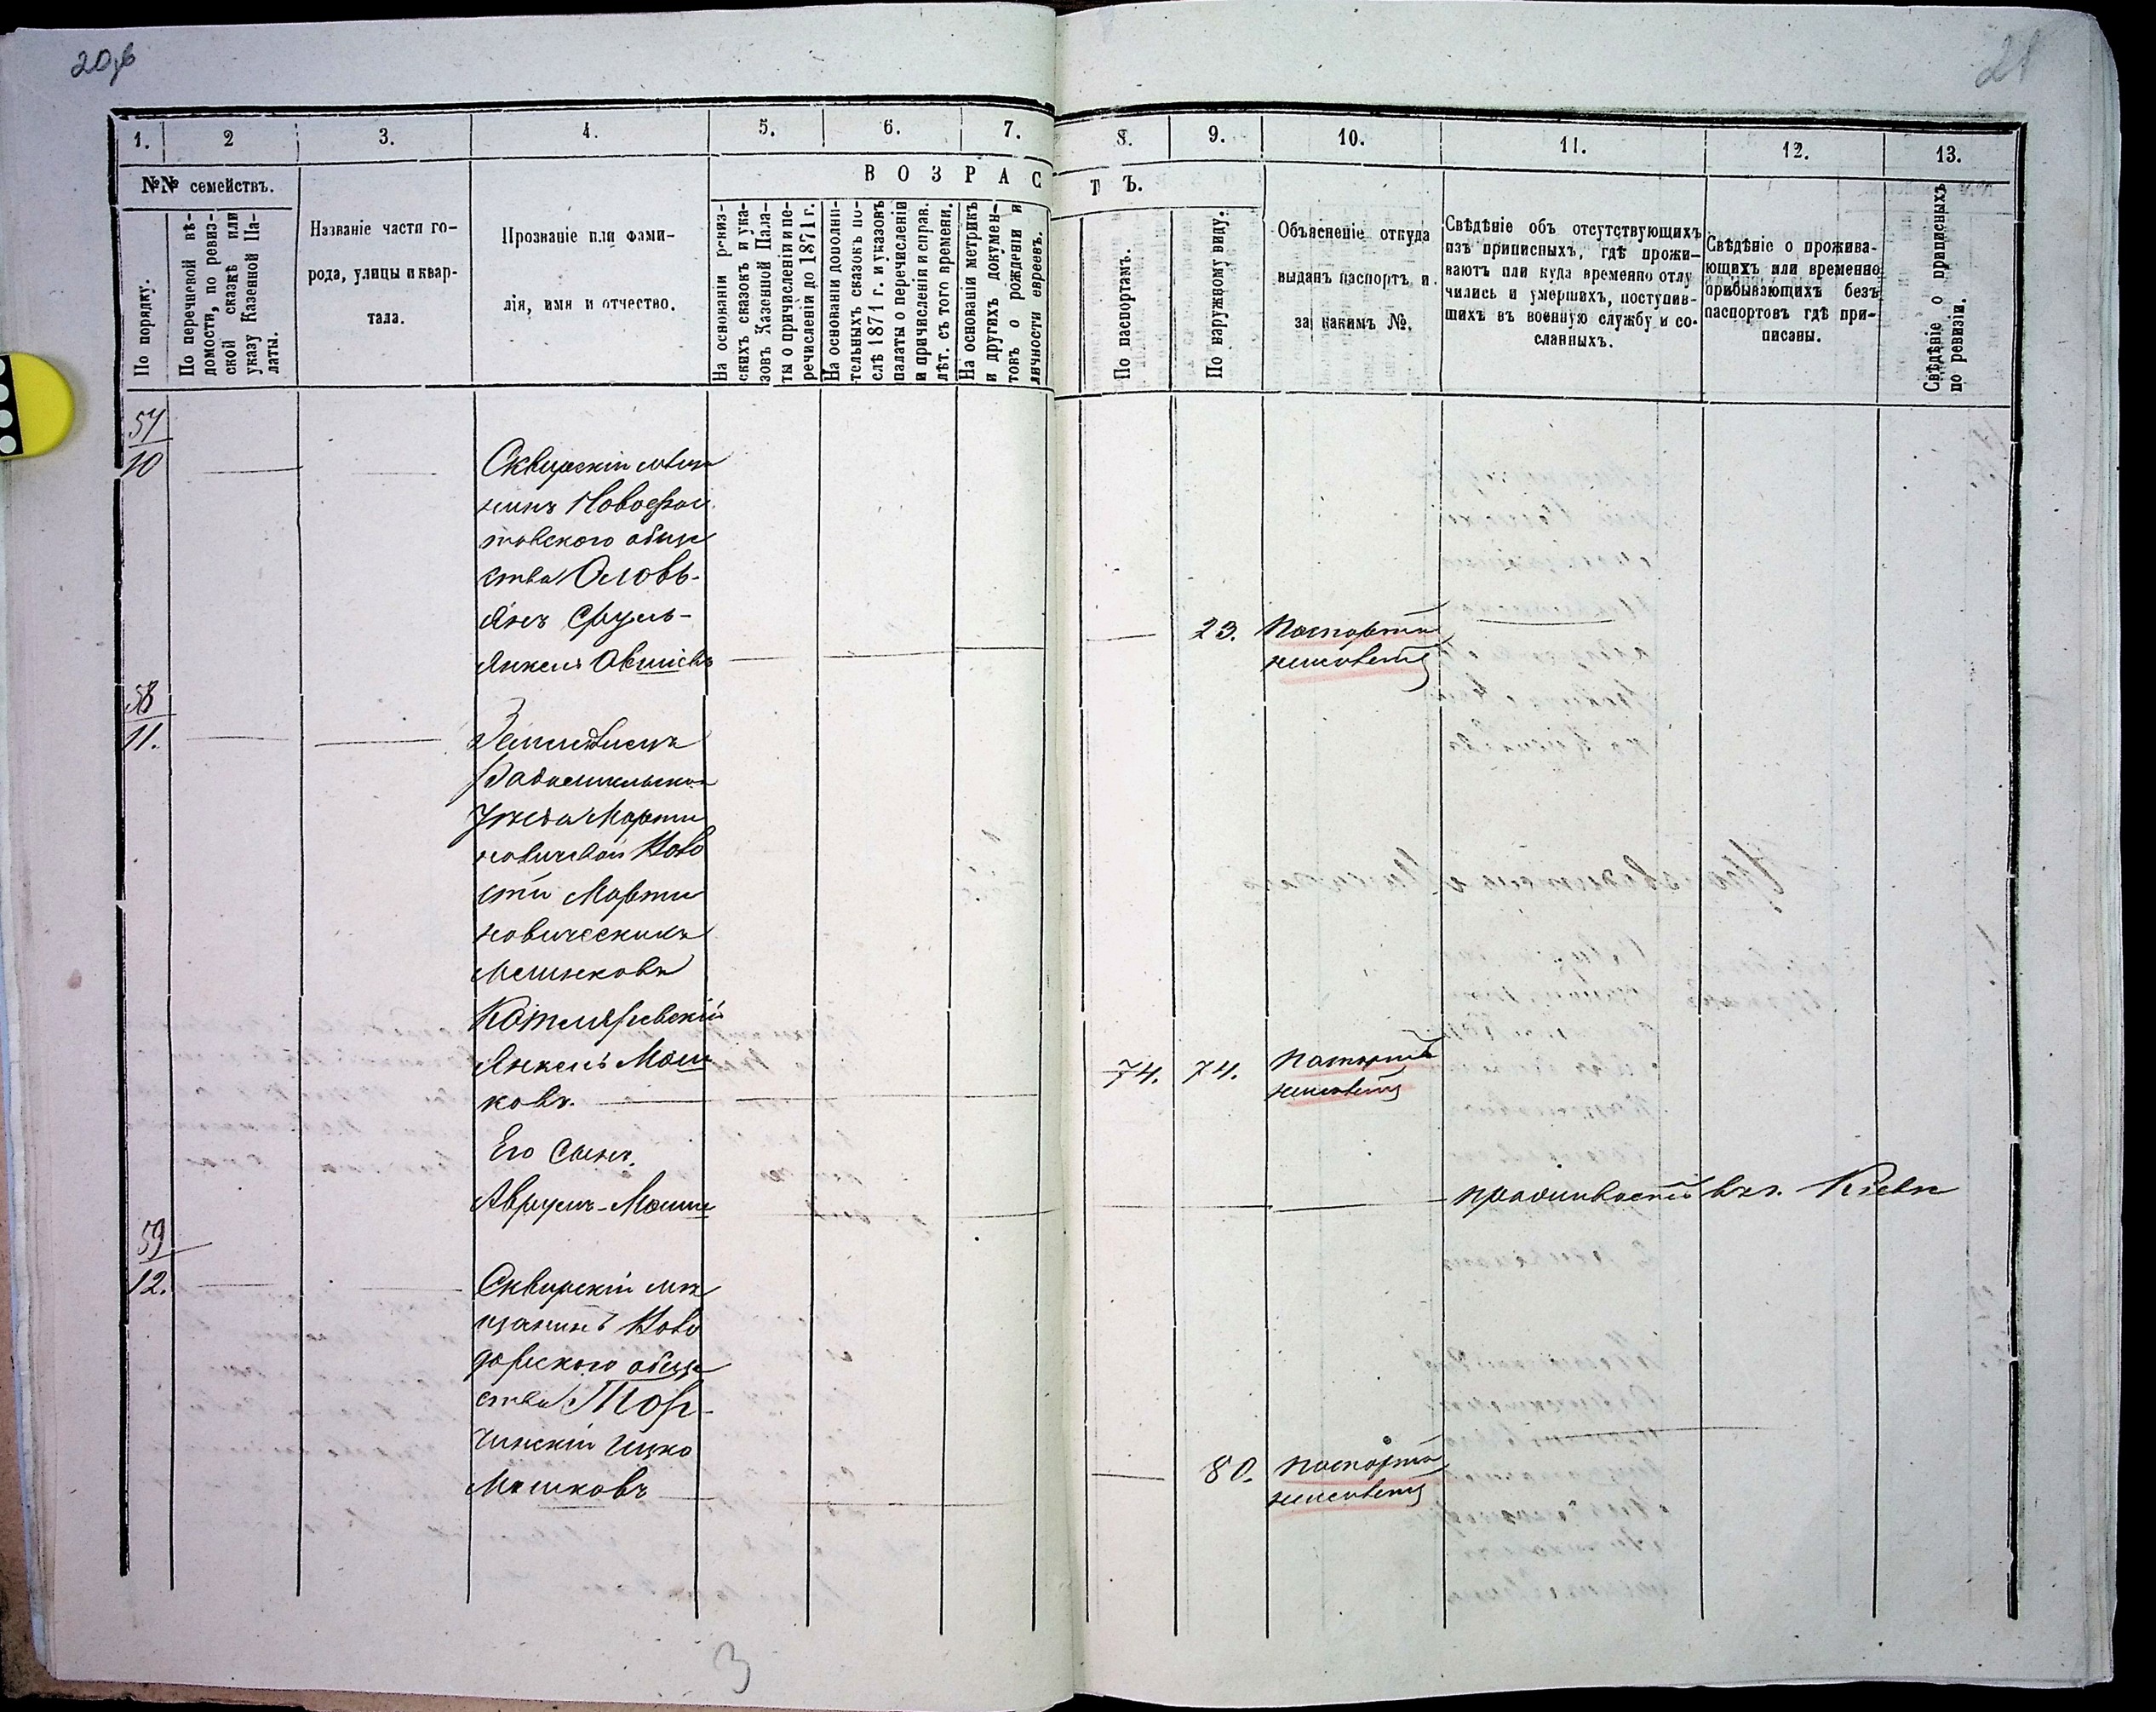 20об
21
1.
2
3.
4.
5.
6.
7.
8.
9.
10.
11.
12.
13.
№№ семействъ.
В О З Р А С
Т Ъ.
По порядку.
По перечновой вѣ-
домости, по ревиз-
ской сказкѣ или
указу Казенной Па-
латы.
Названіе части го-
рода, улицы и квар-
тала.
Прозваніе или фами-
лія, имя и отчество.
На основаніи ревиз-
скихъ сказокъ и ука-
зовъ Казенной Пала-
ты о причисленіи и пе-
речисленіи до 1871 г.
На основаніи дополни-
тельныхъ сказокъ по-
слѣ 1871 г. и указовъ
палаты о перечисленіи
и причисленіи и справ.
лѣт. съ того времени.
На основаніи метрикъ
и другихъ докумен-
товъ о рожденіи и
личности евреевъ.
По паспортамъ.
По наружному виду.
Объясненіе откуда
выданъ паспортъ и
за какимъ №.
Свѣдѣніе объ отсутствующихъ
изъ приписныхъ, гдѣ прожи-
ваютъ или куда временно отлу
чились и умершихъ, поступив-
шихъ въ военную службу и со-
сланныхъ.
Свѣдѣніе о прожива-
ющихъ или временно
прибывающихъ безъ
паспортовъ гдѣ при-
писаны.
Свѣдѣніе о приписныхъ
по ревизіи.
57
10
Сквирскій мѣща
нинъ
товского обще
ства Оловь-
янъ Сруль-
Янкель Овшіевъ
23.
Паспорта
неимѣетъ
58
11.
Земледѣлецъ
Радомысльскаго
Уѣзда Марти
новичской Воло
сти Марти
новическихъ
Мешковъ
Котляревскій
Янкель Мош
ковъ.
74.
74.
Паспорта
неимѣетъ
Его Сынъ
Аврумъ-Мошко
проживаетъ въ г. Кіевѣ
59
12.
Сквирскій мѣ
щанинъ Ново
дорского обще
ства Тор-
чинскій Ицко
Мошковъ
80.
паспорта
неимѣетъ
3